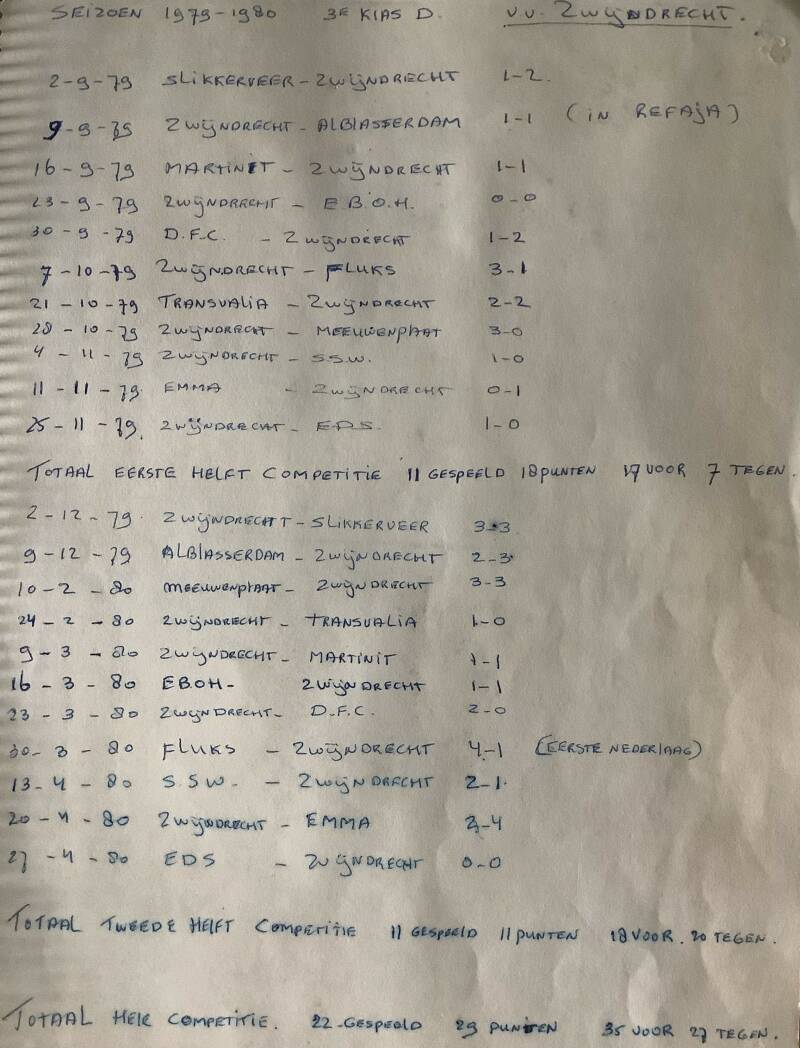 SEIZOEN 1979-1980 3E KLAS D. V.V. ZWIJNDRECHT.
2-9-79 SLIKKERVEER - ZWIJNDRECHT 1-2
9-9-79 ZWIJNDRECHT - ALBLASSERDAM 1-1 (IN REFAJA)
16-9-79 MARTINIT - ZWIJNDRECHT 1-1
23-9-79 ZWIJNDRECHT - E.B.O.H. 0-0
30-9-79 D.F.C. - ZWIJNDRECHT 1-2
7-10-79 ZWIJNDRECHT - FLUKS 3-1
21-10-79 TRANSVALIA - ZWIJNDRECHT 2-2
28-10-79 ZWIJNDRECHT - MEEUWENPLAAT 3-0
4-11-79 ZWIJNDRECHT - S.S.W. 1-0
11-11-79 EMMA - ZWIJNDRECHT 0-1
25-11-79. ZWIJNDRECHT - E.D.S. 1-0
TOTAAL EERSTE HELFT COMPETITIE 11 GESPEELD 18 PUNTEN 17 VOOR 7 TEGEN.
2-12-79. ZWIJNDRECHT - SLIKKERVEER 3-3
9-12-79 ALBLASSERDAM - ZWIJNDRECHT 2-3
10-2-80 MEEUWENPLAAT - ZWIJNDRECHT 3-3
24-2-80 ZWIJNDRECHT - TRANSVALIA 1-0
9-3-80 ZWIJNDRECHT - MARTINIT 1-1
16-3-80 EBOH - ZWIJNDRECHT 1-1
23-3-80 ZWIJNDRECHT - D.F.C. 2-0
30-3-80 FLUKS - ZWIJNDRECHT 4-1 (EERSTE NEDERLAAG)
13-4-80 S.S.W. - ZWIJNDRECHT 2-1.
20-4-80 ZWIJNDRECHT - EMMA 3-4
27-4-80 EDS - ZWIJNDRECHT 0-0
TOTAAL TWEEDE HELFT COMPETITIE 11 GESPEELD 11 PUNTEN 18 VOOR. 20 TEGEN.
TOTAAL HELE COMPETITIE. 22 GESPEELD 29 PUNTEN 35 VOOR 27 TEGEN.